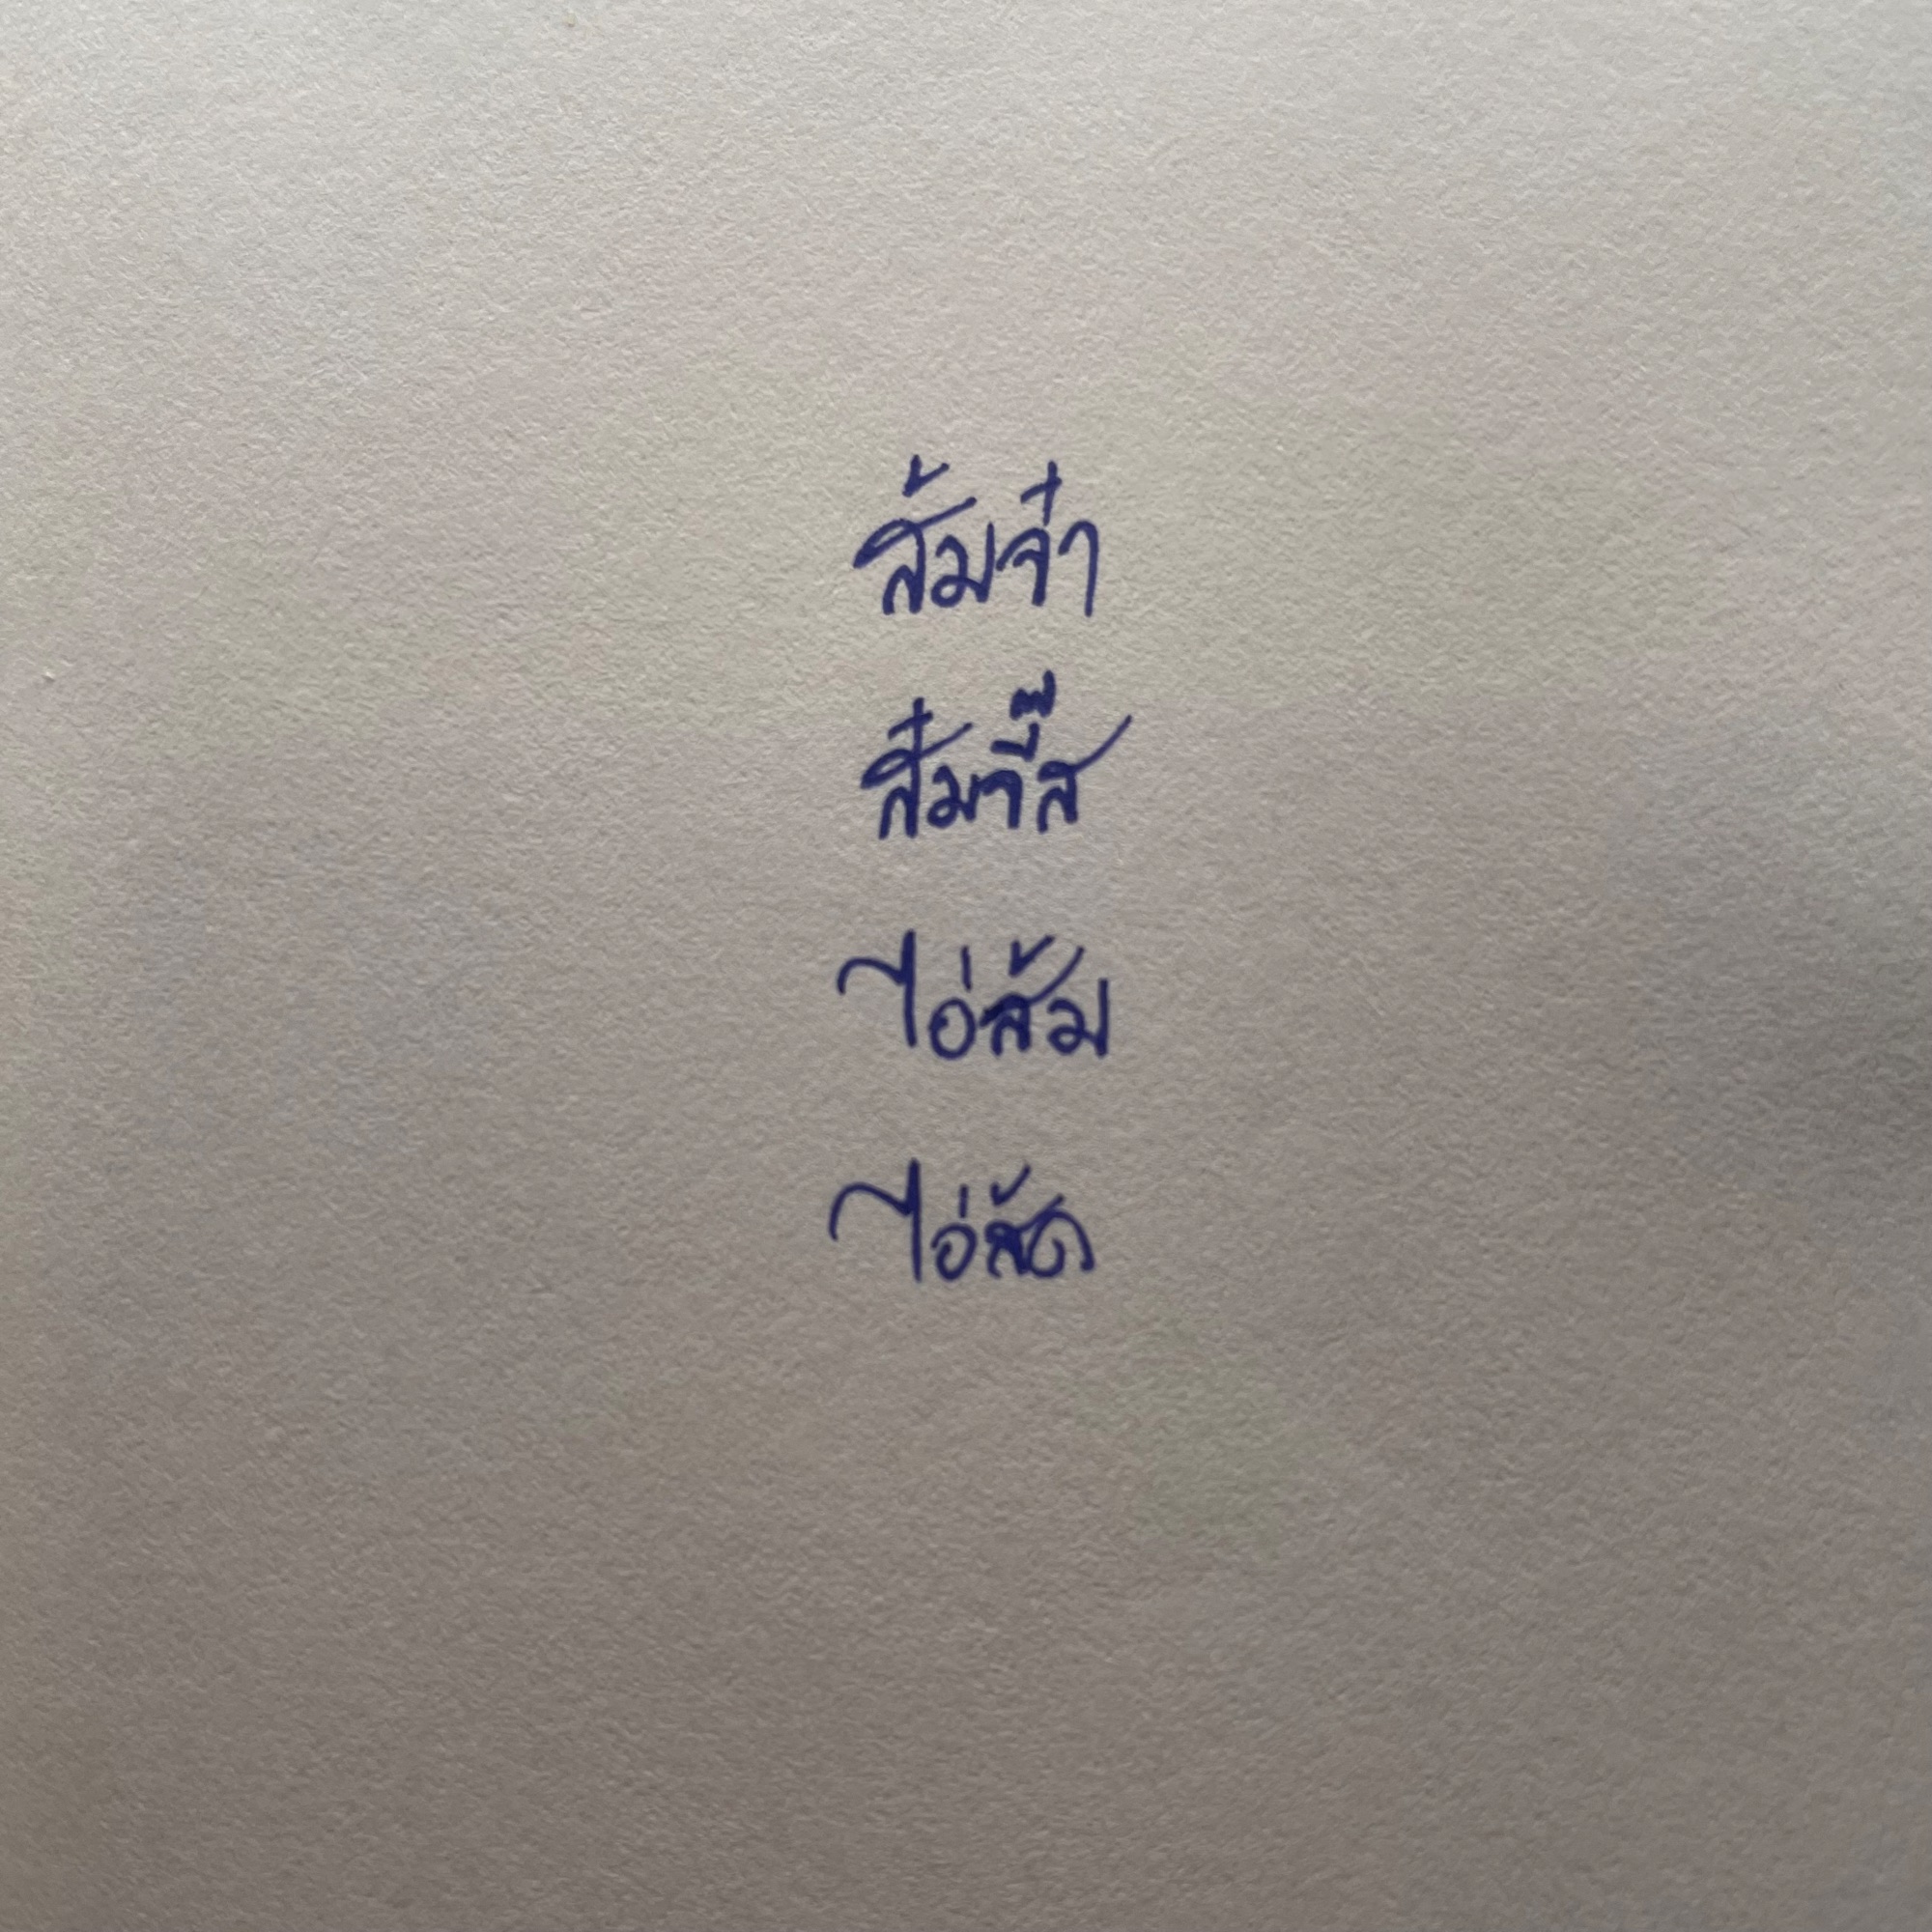 ส้มจ๋า
ส๋มจี๊ส
ไอ่ส้ม
ไอ่สัด